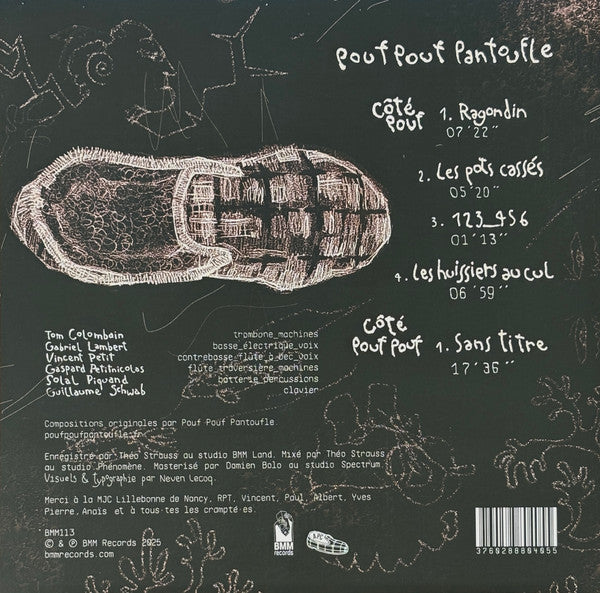 Pouf Pouf Pantoufle
Côté Pouf
1. Ragondin
07'22"
2. Les pots cassés
05'20"
3. 123_456
01'13"
4. Les huissiers au cul
06'59"
Côté Pouf Pouf
1. Sans titre
17'36"
Tom Colombain trombone_machines
Gabriel Lambert basse_électrique_voix
Vincent Petit contrebasse_flûte à bec_voix
Gaspard Petitnicolas flûte traversière_machines
Solal Piquand batterie_percussions
Guillaume Schwab clavier
Compositions originales par Pouf Pouf Pantoufle.
poufpoufpantoufle.fr
Enregistré par Théo Strauss au studio BMM Land. Mixé par Théo Strauss
au studio Phénomène. Masterisé par Damien Bolo au studio Spectrum.
Visuels & Typographie par Neven Lecoq.
Merci à la MJC Lillebonne de Nancy, RPT, Vincent, Paul, Albert, Yves
Pierre, Anaïs et à tous·tes les crampté·es.
BMM113
© & ℗ BMM Records 2025
bmmrecords.com
BMM
records
3760288804055